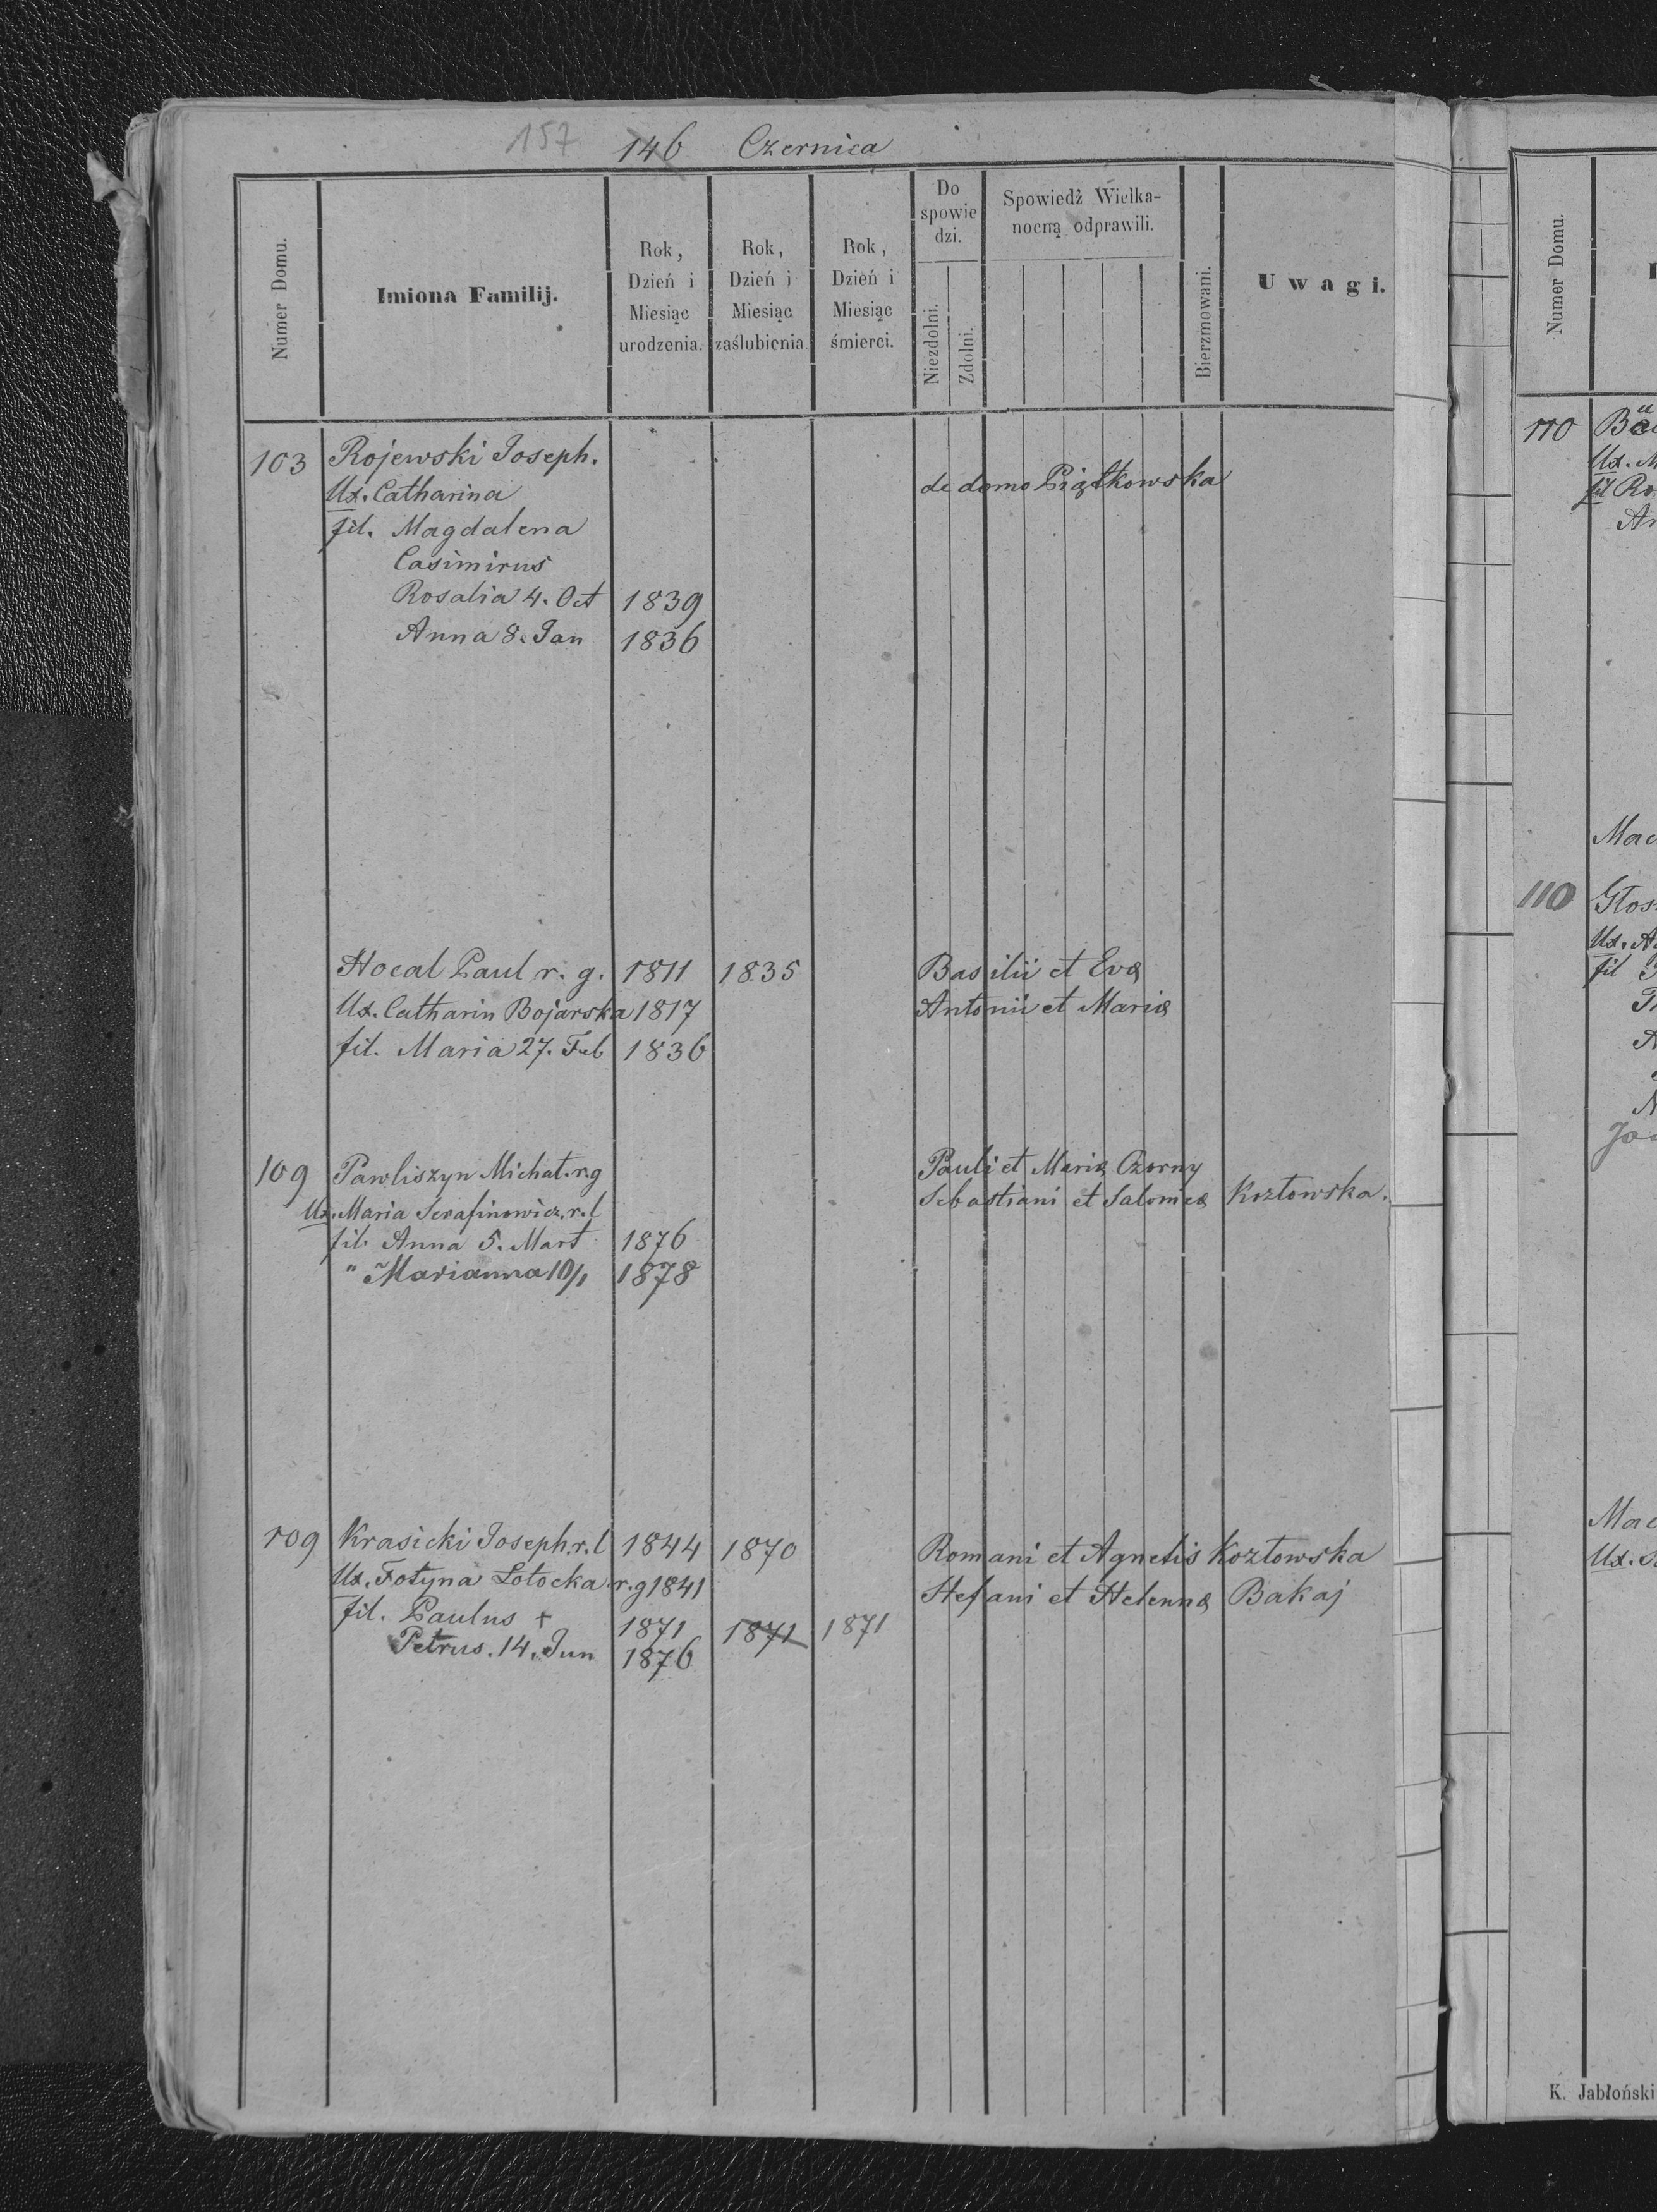 157 146 Czernica
Numer Domu.
Imiona Familij.
Rok, Dzień i Miesiąc urodzenia.
Rok, Dzień i Miesiąc zaślubienia.
Rok, Dzień i Miesiąc śmierci.
Do spowiedzi.
Niezdolni.
Zdolni.
Spowiedź Wielkanocną odprawili.
Bierzmowani.
Uwagi.
103 Rojewski Joseph.
Ux. Catharina de domo Piątkowska
fil. Magdalena
Casimirus
Rosalia 4. Oct 1839
Anna 8. Jan 1836
Hocal Paul r. g. 1811 1835 Basilii et Evæ
Ux. Catharin Bojarska 1817 Antonii et Mariæ
fil. Maria 27. Feb 1836
109 Pawliszyn Michał. r. g Pauli et Mariæ Czorny
Ux. Maria Serafinowicz. r. l Sebastiani et Salomeæ Kozłowska.
fil. Anna 5. Mart 1876
" Marianna 10/1 1878
109 Krasicki Joseph. r. l 1844 1870 Romani et Agnetis Kozłowska
Ux. Fotyna Łotocka r. g 1841 Stefani et Helennæ Bakaj
fil. Paulus + 1871 1871 1871
Petrus. 14. Jun 1876
Numer Domu.
110
Ux. M
fil Ro
Mac
110 Głos
Ux. A
fil
Mac
Ux.
K. Jabłoński